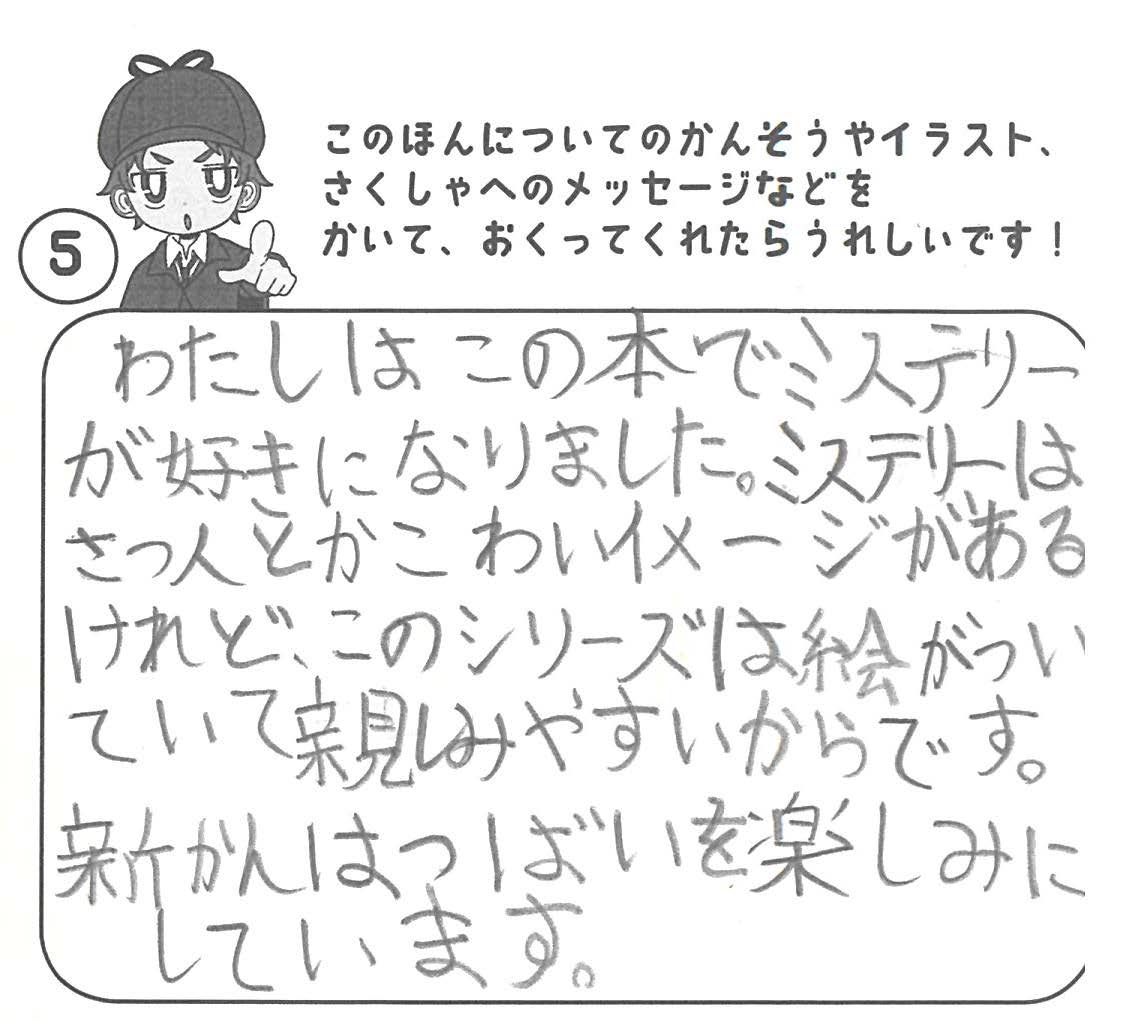 このほんについてのかんそうやイラスト、
さくしゃへのメッセージなどを
かいて、おくってくれたらうれしいです！
5
わたしはこの本でミステリー
が好きになりました。ミステリーは
さつ人とかこわいイメージがある
けれど、このシリーズは絵がつい
ていて親しみやすいからです。
新かんはつばいを楽しみに
しています。